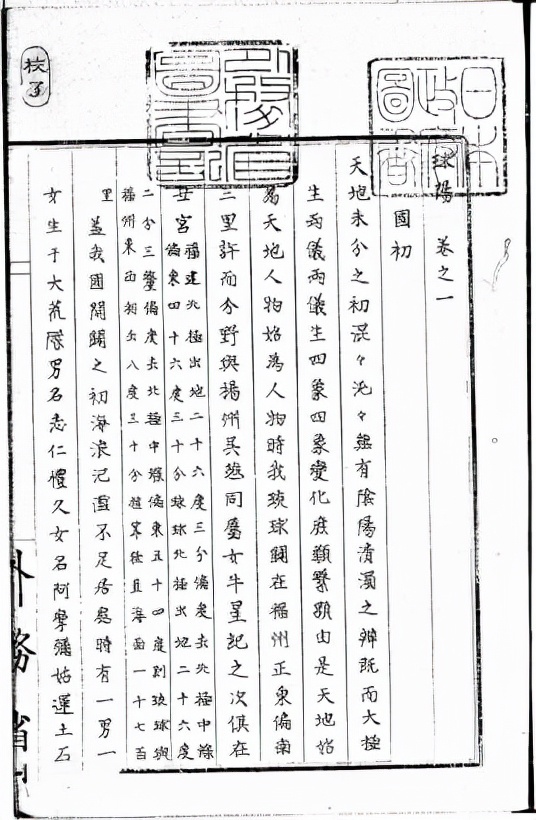 校了
日本政府圖書
球陽 卷之一
國初
天地未分之初混々沌々無有陰陽清濁之辨既而大極
生両儀両儀生四象四象變化庶類繁顆由是天地始
為天地人物始為人物時我琉球闢在福州正東偏南
三里許而分野與揚州吳越同屬女牛星紀之次俱在
丑宮 福建北極出地二十六度三分偏度去北極中線
偏東四十六度三十分琉球北極出地二十六度
二分三釐偏度去北極中線偏東五十四度則琉球與
福州東西相去八度三十分 海面一千七百
里 蓋我國開闢之初海浪氾濫不足居處時有一男一
女生于大荒際男名志仁禮久女名阿摩彌姑運土石
外務省